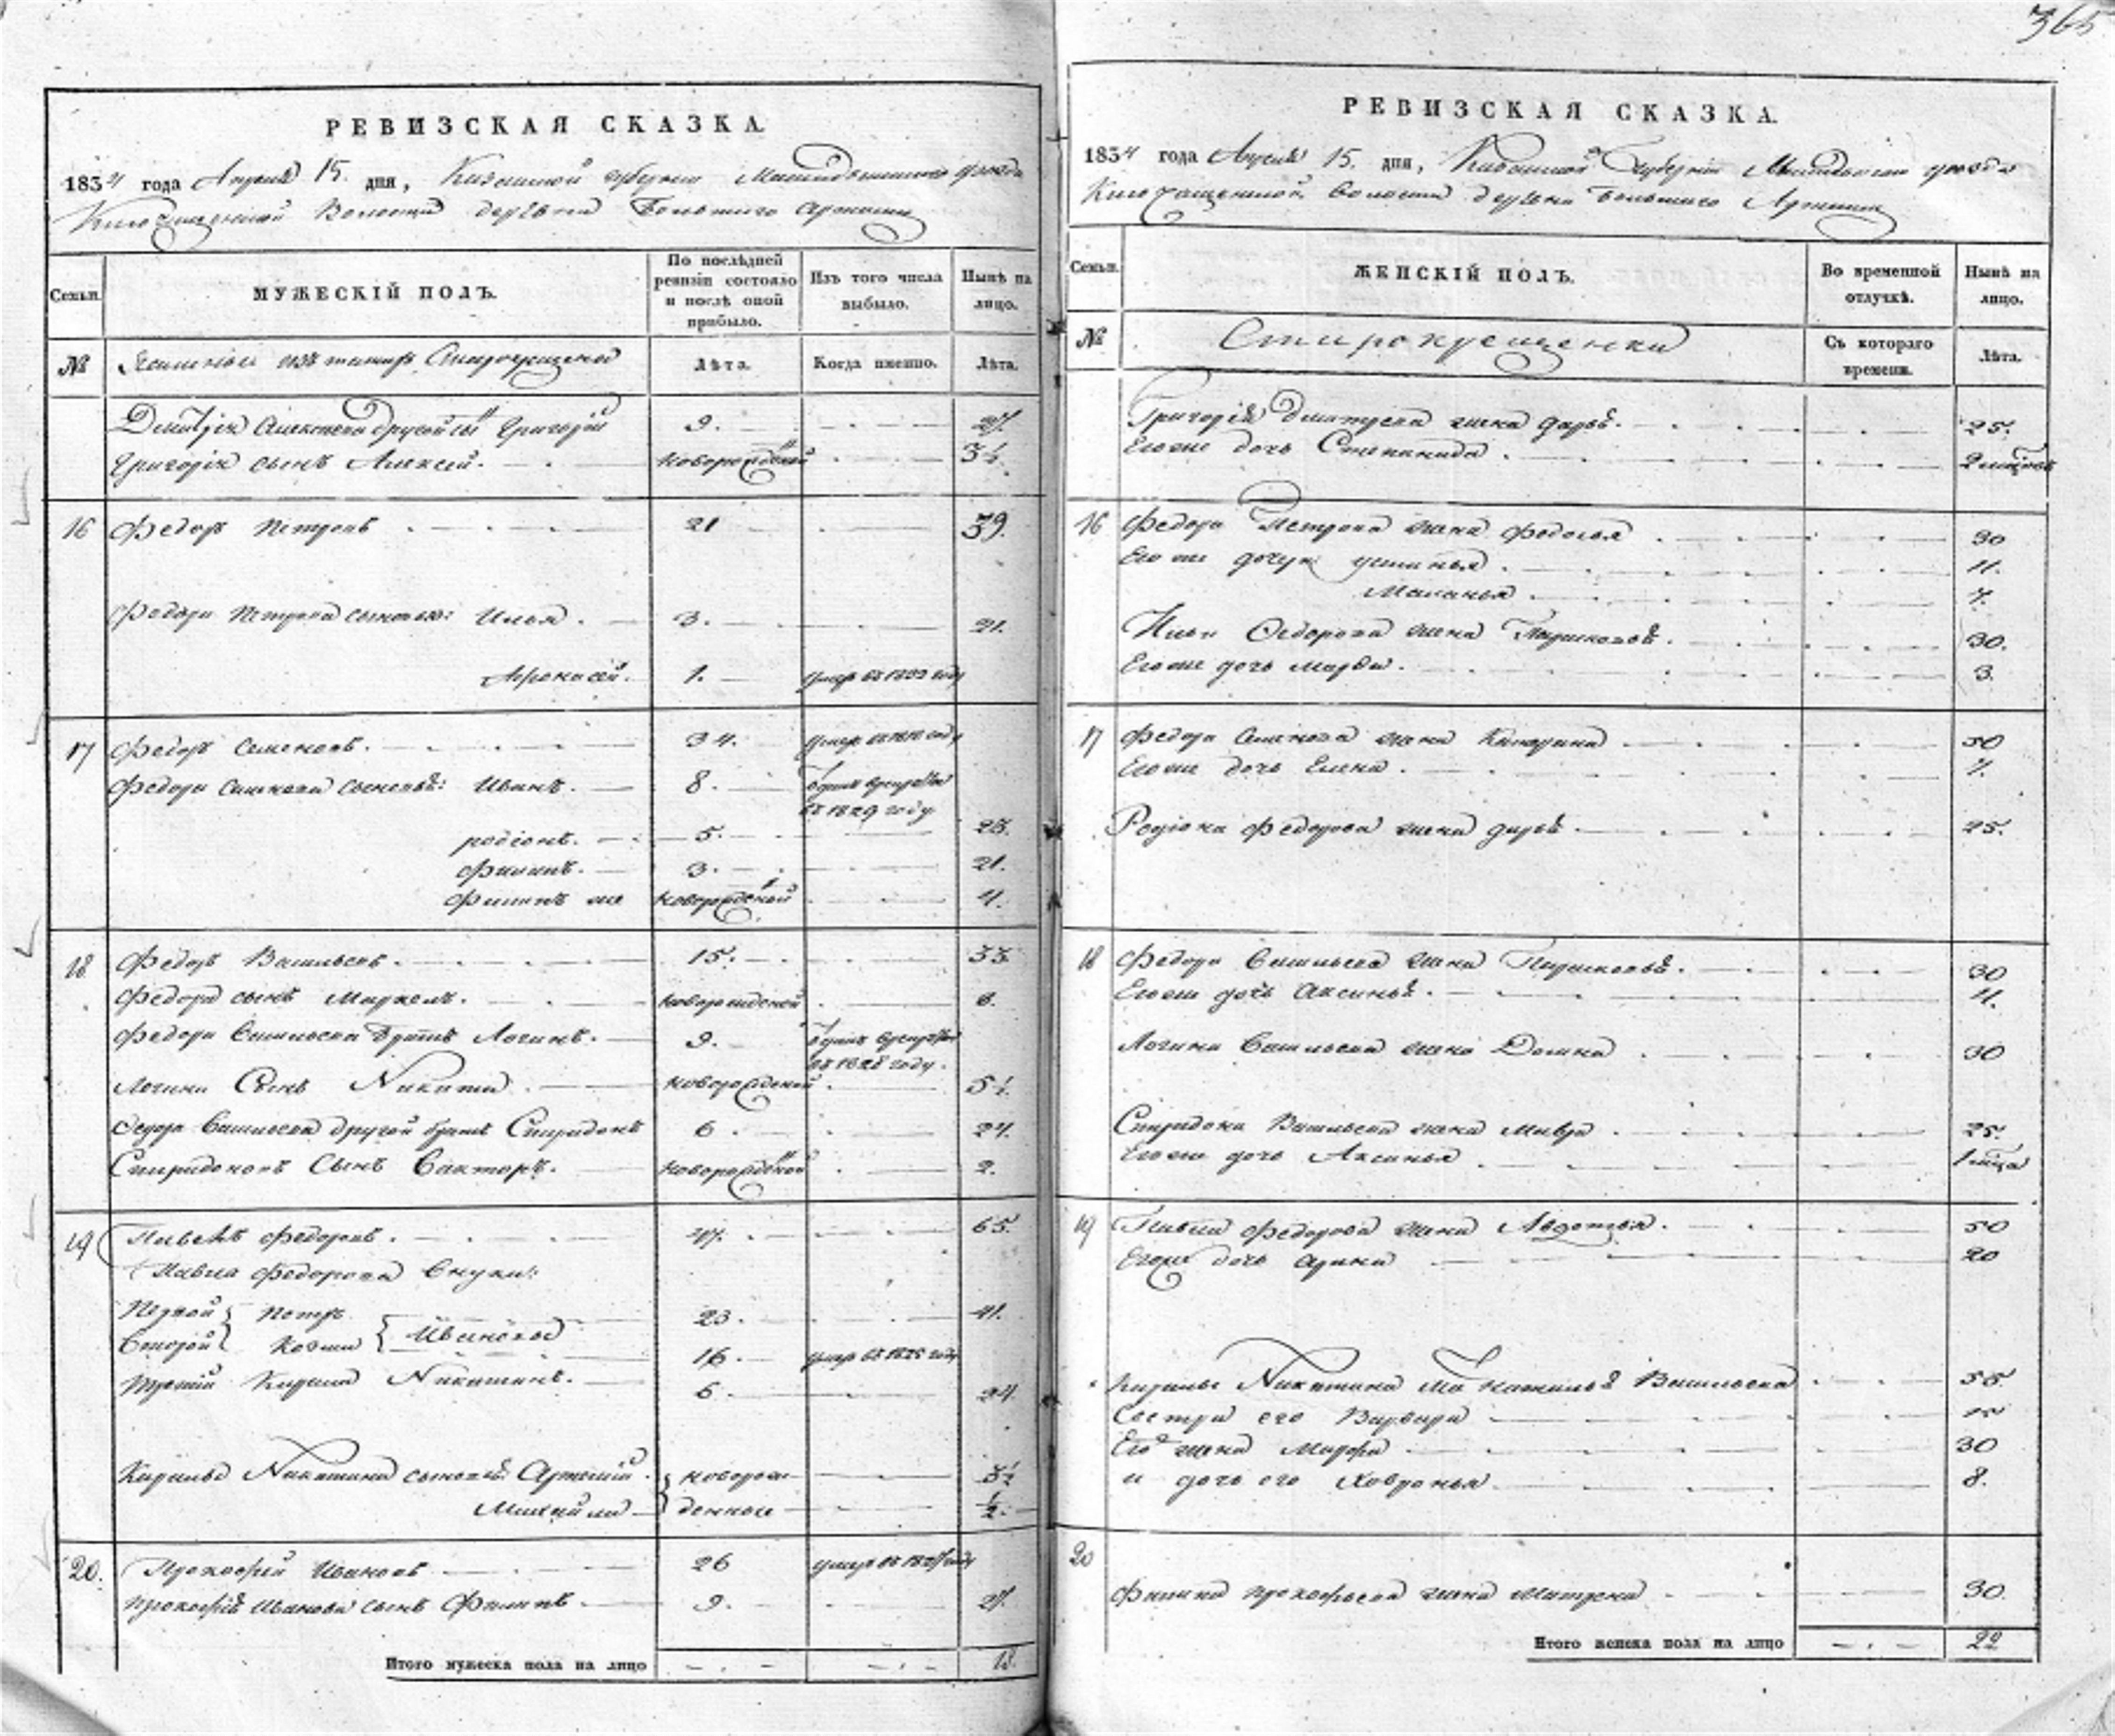 365
РЕВИЗСКАЯ СКАЗКА.
1834 года Апреля 15. дня, Казанской губернии Мамадышского уезда
Ключищенской Волости деревни Большаго Арташа
Семьи.
МУЖЕСКІЙ ПОЛЪ.
По послѣдней ревизіи состояло и послѣ оной прибыло.
Изъ того числа выбыло.
Нынѣ на лицо.
№
изъ татаръ Старокрещены
Лѣта.
Когда именно.
Лѣта.
Дмитрія Алексеева другой сынъ Григорій 9. 27.
Григорія сынъ Алексей. новорожденной 3½.
16 Федоръ Петровъ 21 39.
Федора Петрова сыновья: Илья. 3. 21.
Афонасей. 1. умеръ въ 1822 году
17 Федоръ Семеновъ. 34. умеръ въ году
Федора Семенова сыновья: Иванъ. 8. въ 1829 году
родіонъ. 5. 23.
Филипъ. 3. 21.
Филипъ же новорожденной 11.
18 Федоръ Васильевъ. 15. 33.
Федора сынъ Маркелъ. новорожденной 6.
Федора Васильева братъ Логинъ. 9. въ 1828 году.
Логина Сынъ Никита новорожденной 5½.
Федора Васильева другой братъ Спиридонъ 6. 24.
Спиридоновъ Сынъ Викторъ. новорожденной 2.
19 Павелъ Федоровъ. 47. 65.
Павла Федорова внуки:
Первой Петръ 23. 41.
Второй Козма Ивановы 16. умеръ въ 1825 году
Третій Кирила Никитинъ. 6. 24.
Кирилы Никитина сыновья: Артемій. новорож- 3½
Михайла денные ½.
20. Прокофей Ивановъ 26 умеръ въ году
Прокофія Иванова сынъ Филипъ. 9. 27.
Итого мужеска пола на лицо 18.
РЕВИЗСКАЯ СКАЗКА.
1834 года Апреля 15. дня, Казанской Губерніи Мамадышскаго уезда
Ключищенской волости деревни Большаго Арташа
Семьи.
ЖЕНСКІЙ ПОЛЪ.
Во временной отлучкѣ.
Нынѣ на лицо.
№
Старокрещенки
Съ котораго времени.
Лѣта.
Григорія Дмитрева жена Дарья. 25.
Его же дочь Степанида. 2 месяцовъ
16 Федора Петрова жена Федосья 30
Его же дочери Устинья. 11.
Маланья. 7.
Ильи Федорова жена Парасковья. 30.
Его же дочь Марфа. 3.
17 Федора Семенова жена Катерина 50
Его же дочь Елена. 7.
Родіона Федорова жена Дарья. 25.
18 Федора Васильева жена Парасковья. 30
Его же дочь Аксинья. 11.
Логина Васильева жена Домна 30
Спиридона Васильева жена Мавра 25.
Его же дочь Аксинья 1 месяца
19 Павла Федорова жена Авдотья. 50
Его же дочь Арина 20
Кирилы Никитина мать Васильева 55.
Сестра его Варвара 15
Его жена Марфа 30
и дочь его Ховронья 8.
20
Филипа Прокофьева жена Матрена 30.
Итого женска пола на лицо 22